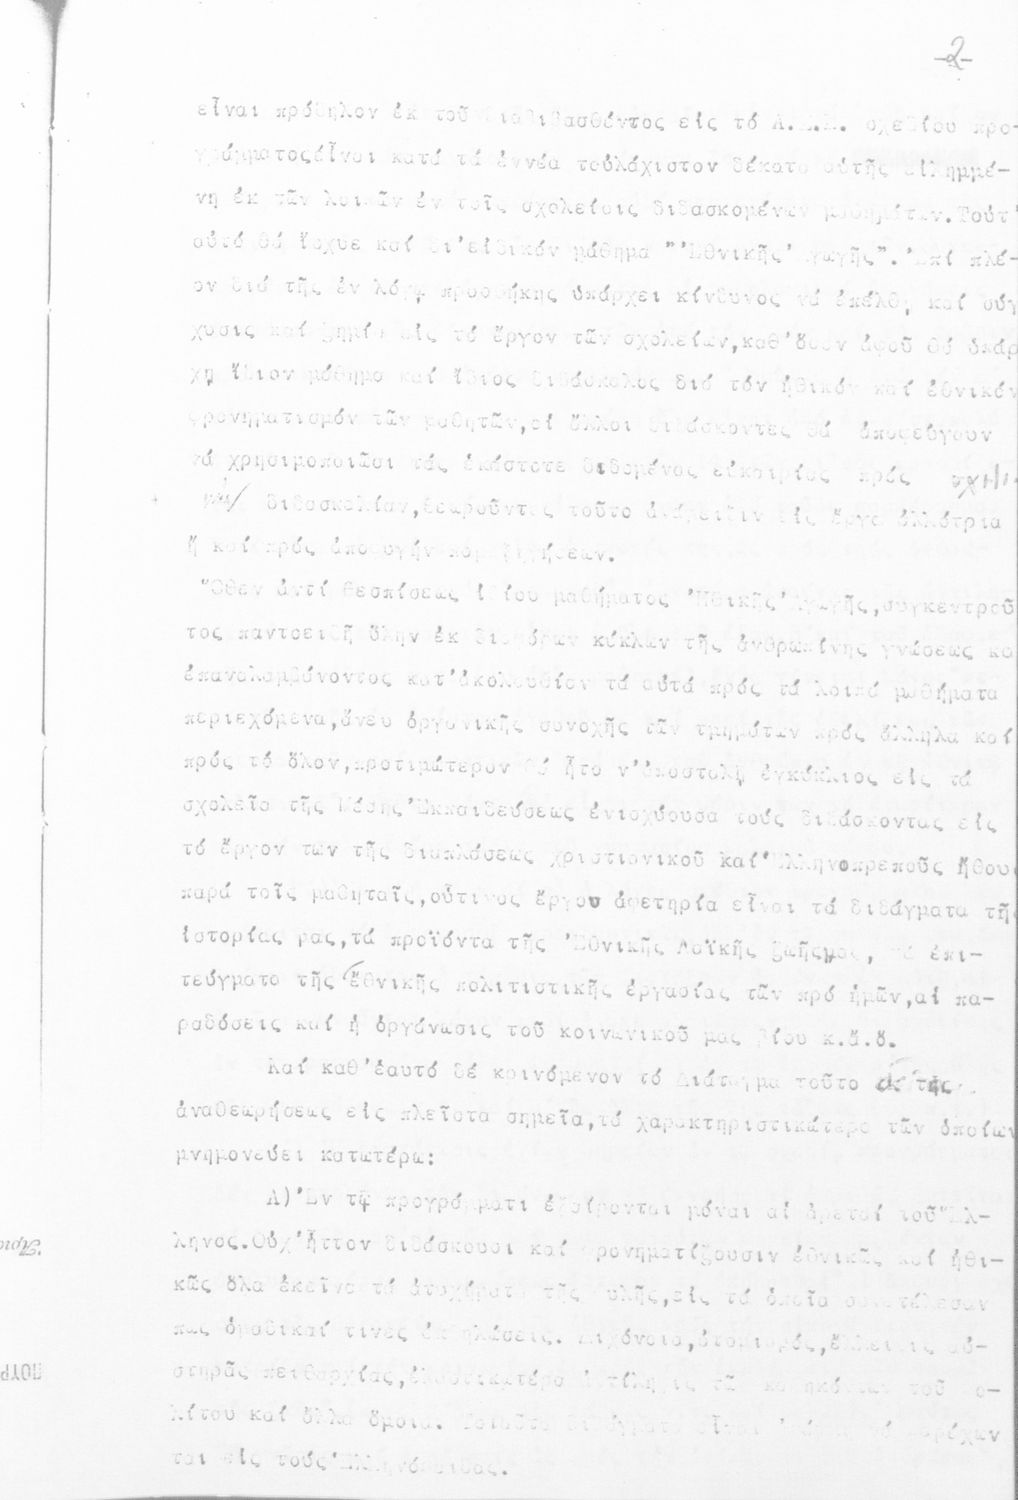 -2-
εἶναι πρόδηλον ἐκ τοῦ διαβιβασθέντος εἰς τό Α.Σ.Ε. σχεδίου προ-
γράμματοςεἶναι κατά τά ἐννέα τοὐλάχιστον δέκατα αὐτῆς εἰλημμέ-
νη ἐκ τῶν λοιπῶν ἐν τοῖς σχολείοις διδασκομένων μαθημάτων.Τοῦτ'
αὐτό θά ἴσχυε καί δι'εἰδικόν μάθημα "'Εθνικῆς'Αγωγῆς".'Επί πλέ-
ον διά τῆς ἐν λόγῳ προσθήκης ὑπάρχει κίνδυνος νά ἐπέλθῃ καί σύγ
χυσις καί ζημία εἰς τό ἔργον τῶν σχολείων,καθ'ὅσον ἀφοῦ θά ὑπάρ
χῃ ἴδιον μάθημα καί ἴδιος διδάσκαλος διά τόν ἠθικόν καί ἐθνικόν
φρονηματισμόν τῶν μαθητῶν,οἱ ἄλλοι διδάσκοντες θά ἀποφεύγουν
νά χρησιμοποιῶσι τάς ἑκάστοτε διδομένας εὐκαιρίας πρός
διδασκαλίαν,θεωροῦντες τοῦτο ἀνάμειξιν εἰς ἔργα ἀλλότρια
ἤ καί πρός ἀποφυγήν παρεξηγήσεων.
"Οθεν ἀντί θεσπίσεως ἰδίου μαθήματος 'Ηθικῆς'Αγωγῆς,συγκεντροῦ
τος παντοειδῆ ὕλην ἐκ διαφόρων κύκλων τῆς ἀνθρωπίνης γνώσεως κα
ἐπαναλαμβάνοντος κατ'ἀκολουθίαν τά αὐτά πρός τά λοιπά μαθήματα
περιεχόμενα,ἄνευ ὀργανικῆς συνοχῆς τῶν τμημάτων πρός ἄλληλα καί
πρός τό ὅλον,προτιμώτερον θά ἦτο ν'ἀποσταλῇ ἐγκύκλιος εἰς τά
σχολεῖα τῆς Μέσης'Εκπαιδεύσεως ἐνισχύουσα τούς διδάσκοντας εἰς
τό ἔργον των τῆς διαπλάσεως χριστιανικοῦ καί'Ελληνοπρεποῦς ἤθους
παρά τοῖς μαθηταῖς,οὗτινος ἔργου ἀφετηρία εἶναι τά διδάγματα τῆς
ἱστορίας μας,τά προϊόντα τῆς 'Εθνικῆς Λαϊκῆς ζωῆςμας, τά ἐπι-
τεύγματα τῆς ἐθνικῆς πολιτιστικῆς ἐργασίας τῶν πρό ἡμῶν,αἱ πα-
ραδόσεις καί ἡ ὀργάνωσις τοῦ κοινωνικοῦ μας βίου κ.ἄ.ὅ.
Καί καθ'ἑαυτό δέ κρινόμενον τό Διάταγμα τοῦτο
ἀναθεωρήσεως εἰς πλεῖστα σημεῖα,τά χαρακτηριστικώτερα τῶν ὁποίων
μνημονεύει κατωτέρω:
Α)'Εν τῷ προγράμματι ἐξαίρονται μόναι αἱ ἀρεταί τοῦ"Ελ-
ληνος.Οὐχ'ἧττον διδάσκουσι καί φρονηματίζουσιν ἐθνικῶς καί ἠθι-
κῶς ὅλα ἐκεῖνα τά ἀτυχήματα τῆς φυλῆς,εἰς τά ὁποῖα συνετέλεσαν
πως ὁμαδικαί τινες ἐκδηλώσεις. Διχόνοια,ἀτομισμός,ἔλλειψις αὐ-
στηρᾶς πειθαρχίας, ἀντίληψις τῶν καθηκόντων τοῦ πο-
λίτου καί ἄλλα ὅμοια. Τοιαῦτα διδάγματα εἶναι ἀνάγκη νά παρέχων
ται εἰς τούς'Ελληνόπαιδας.